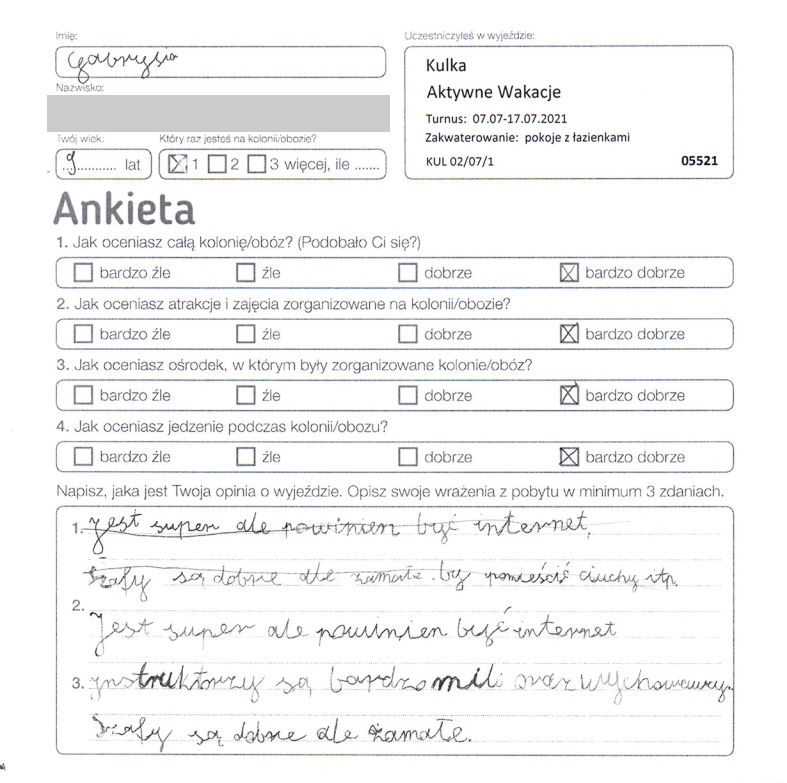 Imię:
Gabrysia
Uczestniczyłeś w wyjeździe:
Kulka
Aktywne Wakacje
Turnus: 07.07-17.07.2021
Zakwaterowanie: pokoje z łazienkami
KUL 02/07/1 05521
Nazwisko:
Twój wiek: Który raz jesteś na kolonii/obozie?
9 lat 1 2 3 więcej, ile .......
Ankieta
1. Jak oceniasz całą kolonię/obóz? (Podobało Ci się?)
bardzo źle źle dobrze bardzo dobrze
2. Jak oceniasz atrakcje i zajęcia zorganizowane na kolonii/obozie?
bardzo źle źle dobrze bardzo dobrze
3. Jak oceniasz ośrodek, w którym były zorganizowane kolonie/obóz?
bardzo źle źle dobrze bardzo dobrze
4. Jak oceniasz jedzenie podczas kolonii/obozu?
bardzo źle źle dobrze bardzo dobrze
Napisz, jaka jest Twoja opinia o wyjeździe. Opisz swoje wrażenia z pobytu w minimum 3 zdaniach.
1. Jest super ale powinien być internet,
Szafy są dobre ale zamałe. by pomieścić ciuchy itp.
2.
Jest super ale powinien być internet
3. ynstruktorzy są bardzo mili oraz wychowawcy.
Szafy są dobre ale zamałe.